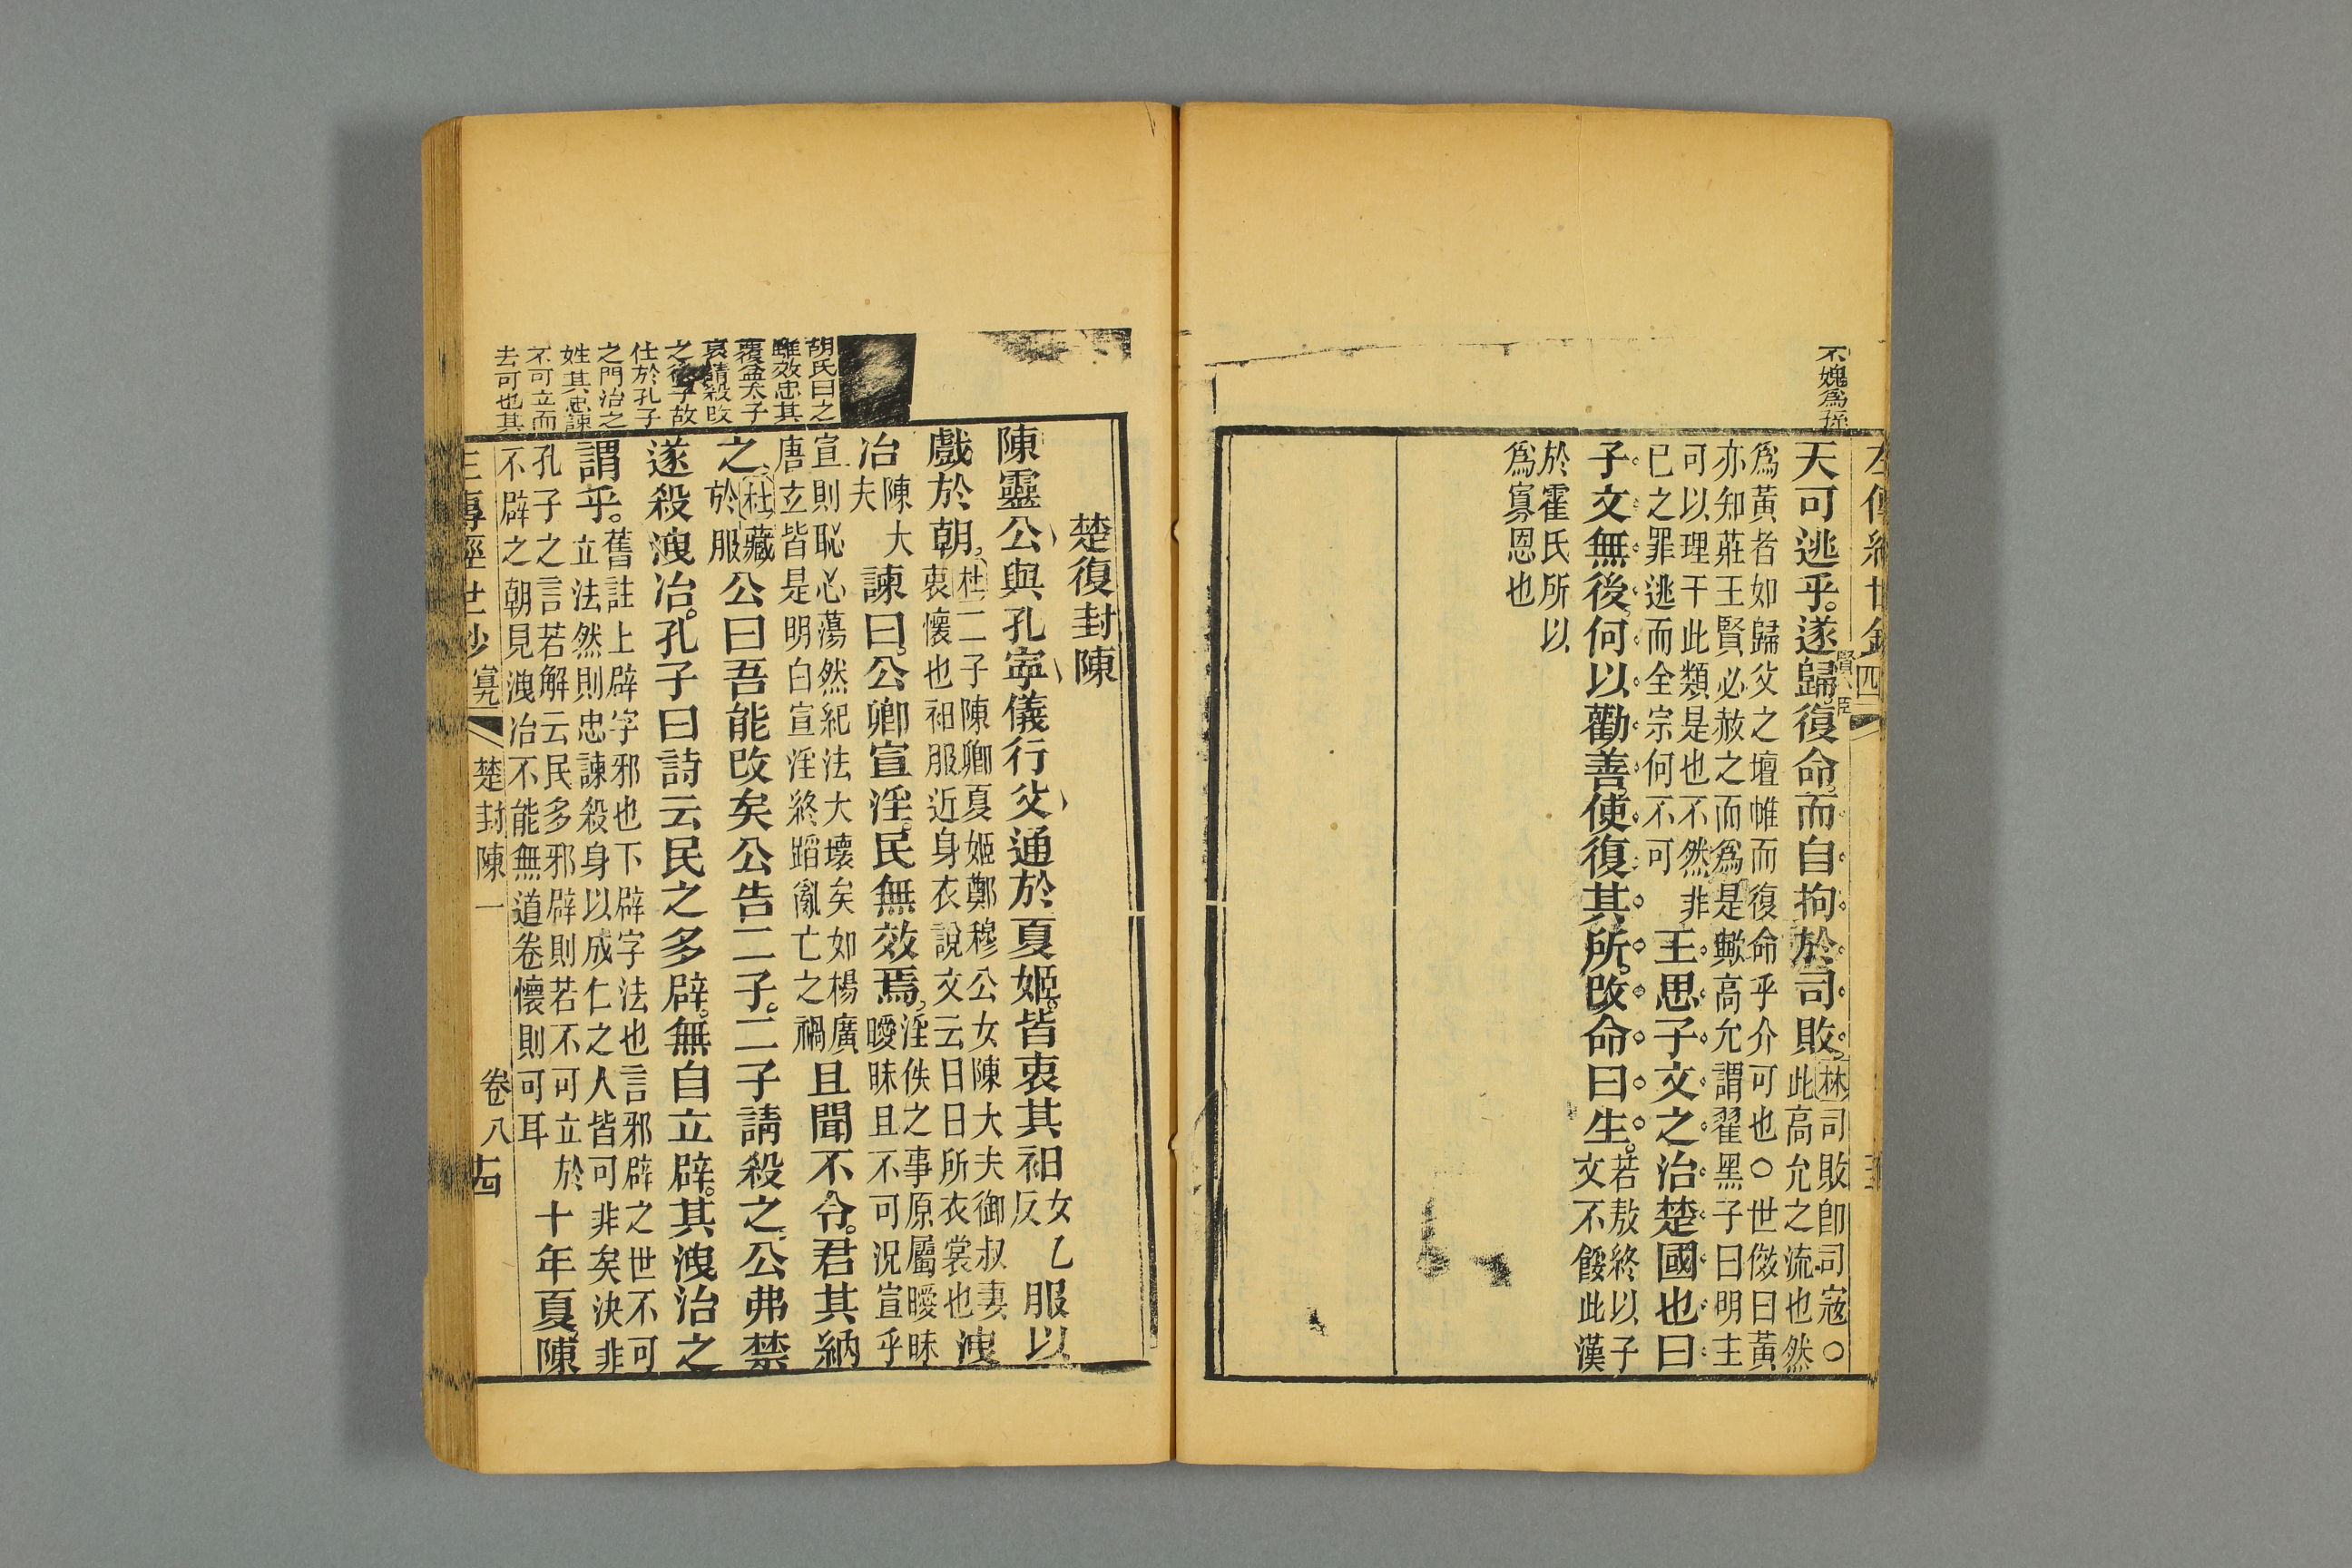 不媿爲孫
天可逃乎。遂歸復命。而自拘於司敗。林司敗卽司寇○
此高允之流也然
爲黃者如歸父之壇帷而復命乎介可也○世儆曰黃
亦知莊王賢必赦之而爲是歟高允謂翟黑子曰明主
可以理干此類是也不然非
已之罪逃而全宗何不可
王思子文之治楚國也曰
子文無後。何以勸善。使復其所。改命曰生。若敖終以子
文不餒此漢
於霍氏所以
爲寡恩也
楚復封陳
陳靈公與孔寧儀行父通於夏姬。皆衷其衵女乙反服以
戲於朝。杜二子陳卿夏姬鄭穆公女陳大夫御叔妻
衷懷也衵服近身衣說文云日日所衣裳也
洩
冶陳大夫諫曰。公卿宣淫。民無效焉。淫佚之事原屬曖昧
曖昧且不可況宣乎
宣則恥心蕩然紀法大壞矣如楊廣
唐玄皆是明白宣淫終蹈亂亡之禍
且聞不令。君其納
之。杜藏於服公曰吾能改矣公告二子。二子請殺之。公弗禁
遂殺洩冶。孔子曰詩云民之多辟。無自立辟。其洩治之
謂乎。舊註上辟字邪也下辟字法也言邪辟之世不可
立法然則忠諫殺身以成仁之人皆可非矣決非
孔子之言若解云民多邪辟則若不可立於
不辟之朝見洩冶不能無道卷懷則可耳
十年夏。陳
胡氏曰之
雖效忠其
覆盆太子
哀請殺改
仕於孔子
之門治之
姓其忠諫
不可立而
去可也其
楚封陳一
卷八